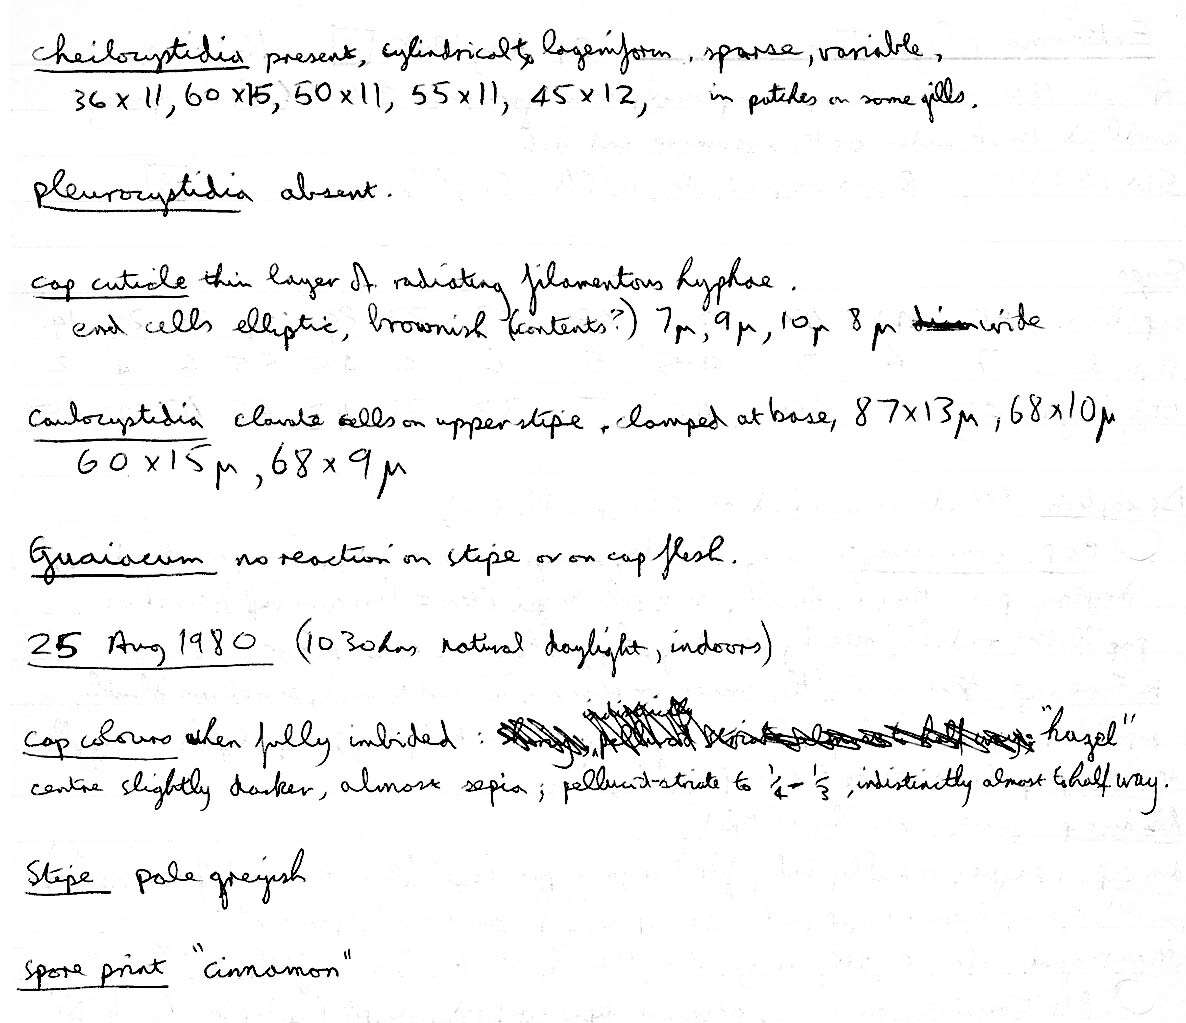 cheilocystidia present, cylindrical to lageniform, sparse, variable,
36 x 11, 60 x 15, 50 x 11, 55 x 11, 45 x 12, in patches on some gills.
pleurocystidia absent.
cap cuticle thin layer of radiating filamentous hyphae.
end cells elliptic, brownish (contents?) 7μ, 9μ, 10μ 8μ wide
caulocystidia clavate cells on upper stipe, clamped at base, 87x13μ, 68x10μ
60 x 15μ, 68 x 9μ
Guaiacum no reaction on stipe or on cap flesh.
25 Aug 1980 (1030hrs natural daylight, indoors)
cap colours when fully imbibed : "hazel"
centre slightly darker, almost sepia; pellucid-striate to 1/4 - 1/3, indistinctly almost to half way.
Stipe pale greyish
spore print "cinnamon"